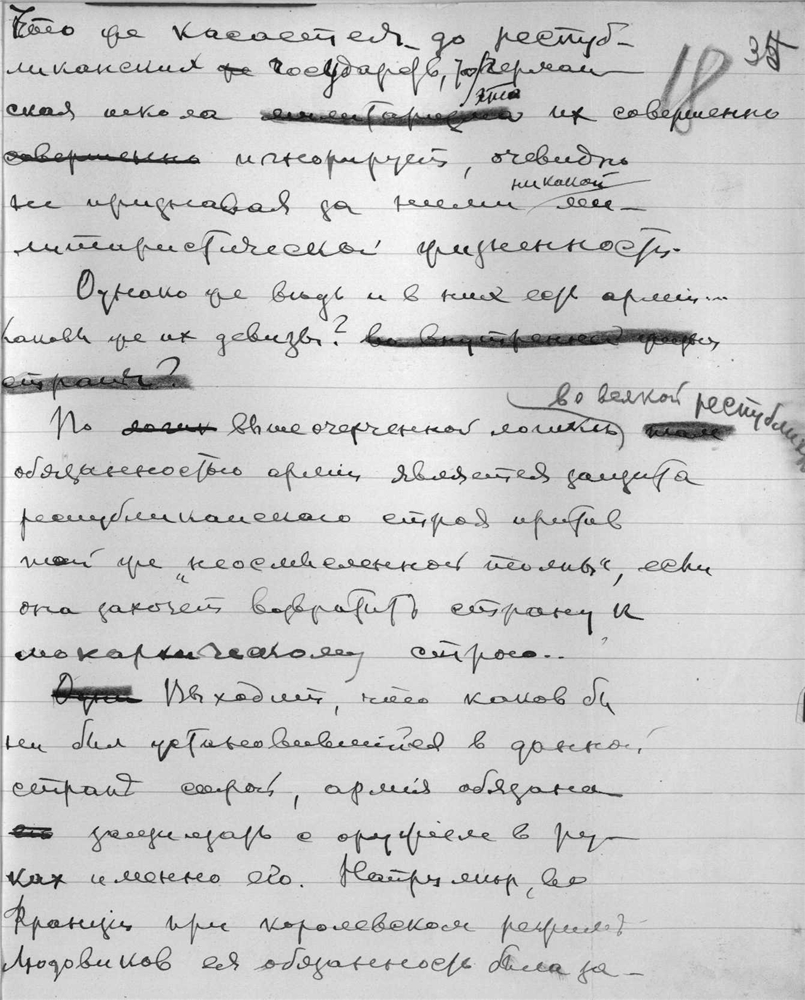 18 35
Что же касается до респуб-
ликанских же государств, то герман-
ская школа милитаризма эта их совершенно
совершенно игнорирует, очевидно
не признавая за ними никакой ми-
литаристической жизненности.
Однако же ведь и в них есть армии...
Каковы же их девизы? во внутренней жизни
страны?
По логик вышеочерченной логике, во всякой республике там
обязанностью армии является защита
республиканского строя против
той же „неосмысленной толпы“, если
она захочет возвратить страну к
монархическому строю...
Одни Выходит, что каков бы
ни был установившийся в данной
странѣ строй, армия обязана
его защищать с оружием в ру-
ках именно его. Например, во
Франции при королевском режимѣ
Людовиков ея обязанность была за-